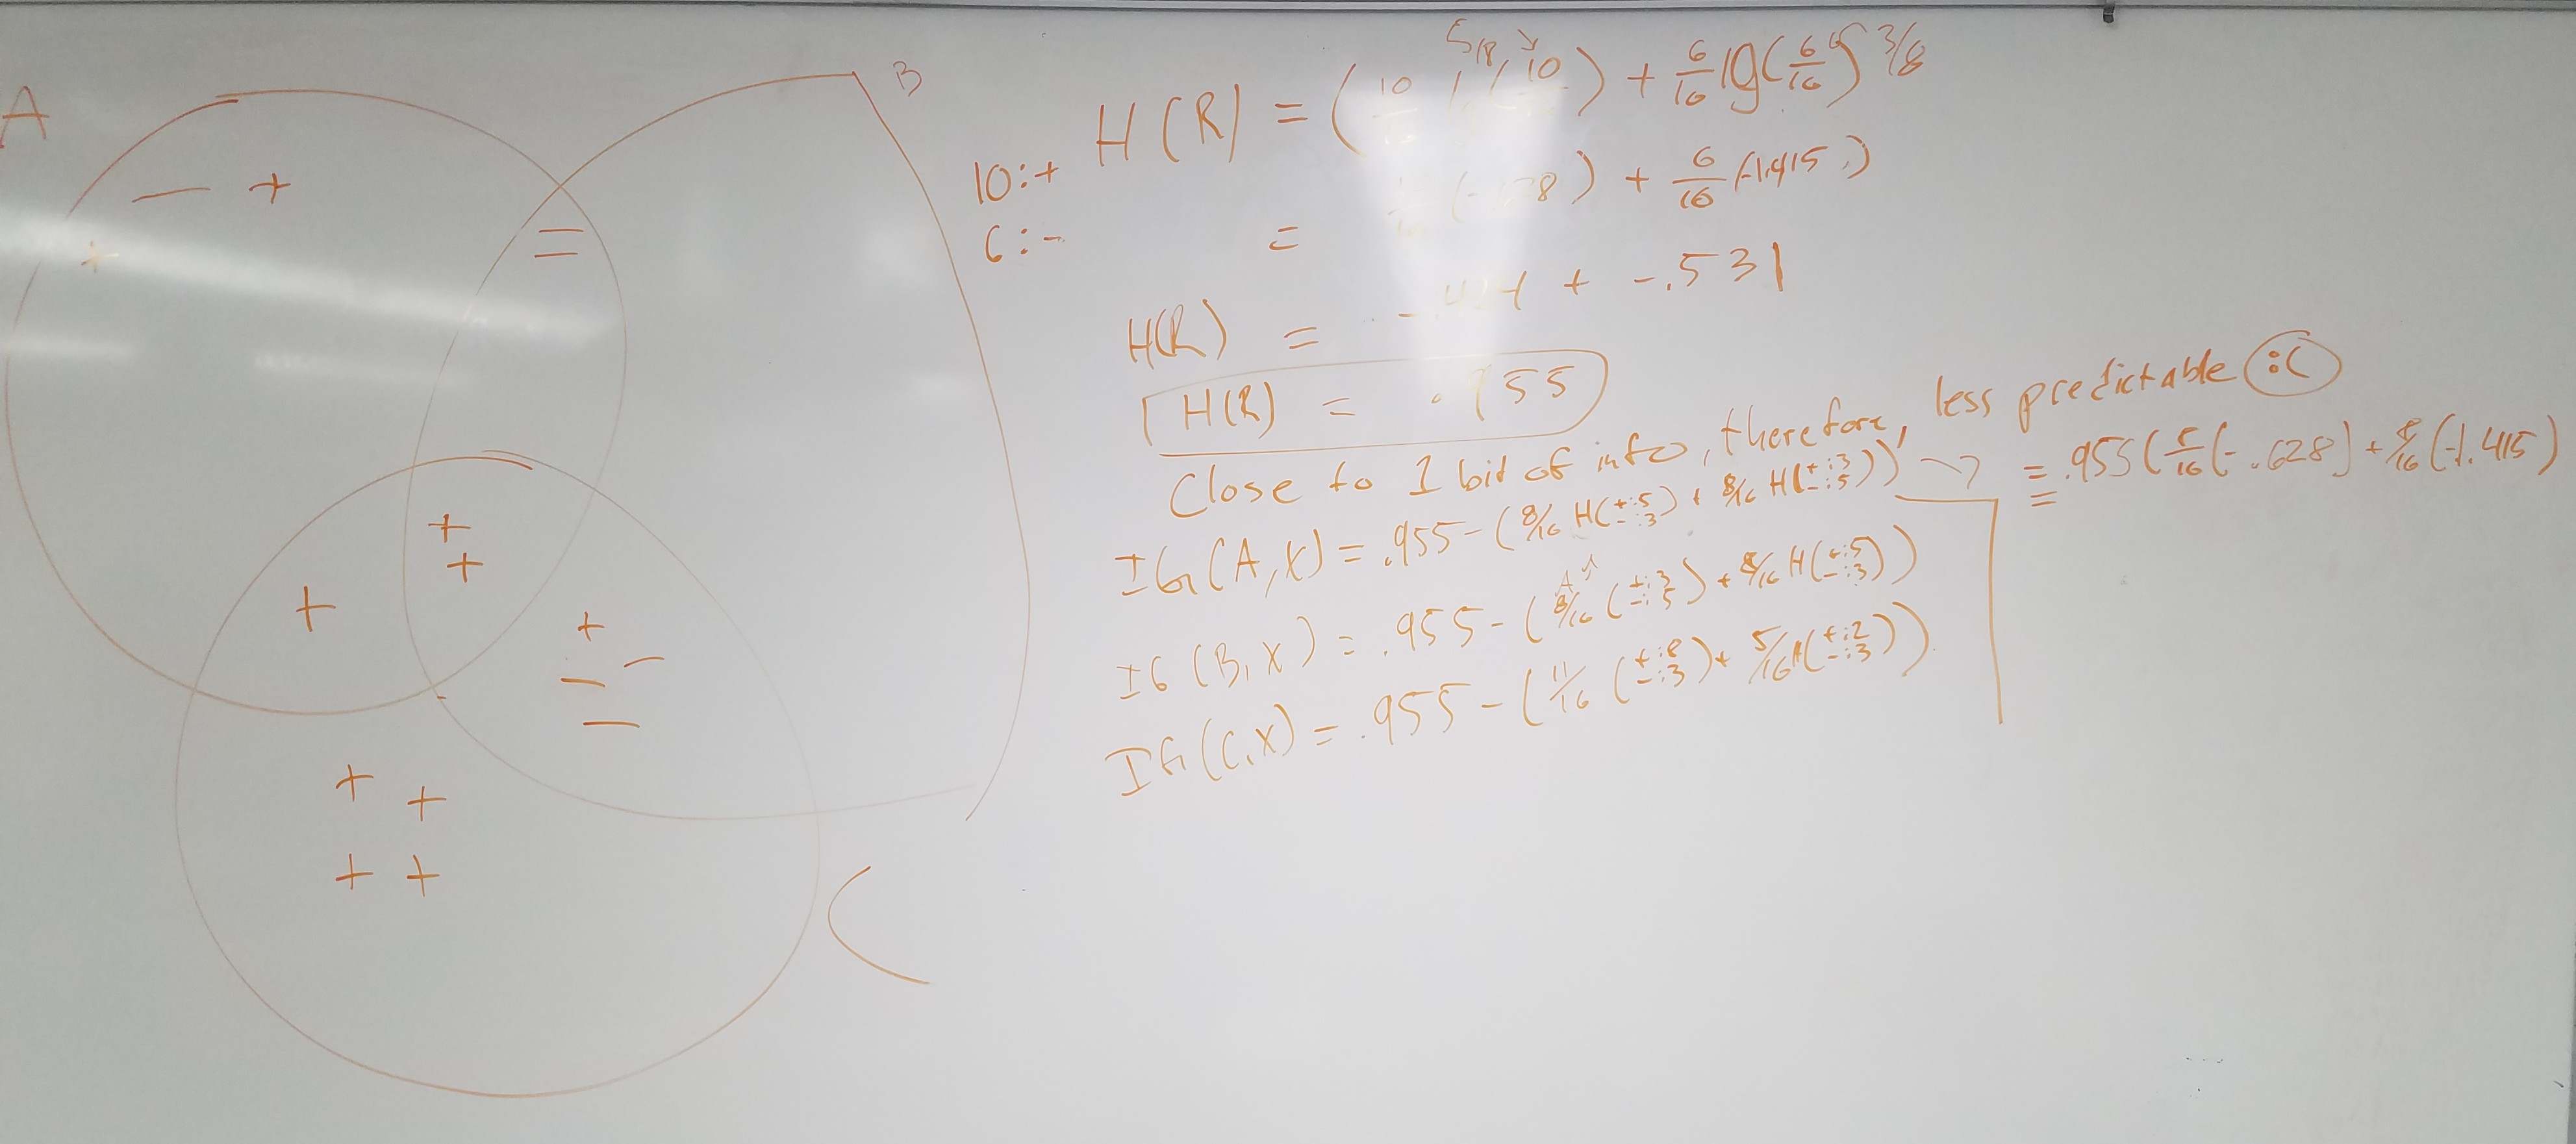 A
B
C
− +
+
=
+
+
+
+
− −
−
+ +
+ +
10:+
6:-
5/8
H(R) = (10/16 lg(10/16)) + 6/16 lg(6/16) 3/8
= (-. 8) + 6/16 (-1.415)
H(R) = -.424 + -.531
H(R) = .955
Close to 1 bit of info, therefore, less predictable :(
IG(A,X) = .955 - (8/16 H(+:5 -:3) + 8/16 H(+:3 -:5)) → = .955(5/16(-.628) + /16(-1.415)
=
IG(B,X) = .955 - (8/16 (+:3 -:5) + 8/16 H(+:5 -:3))
IG(C,X) = .955 - (11/16 (+:8 -:3) + 5/16 H(+:2 -:3))